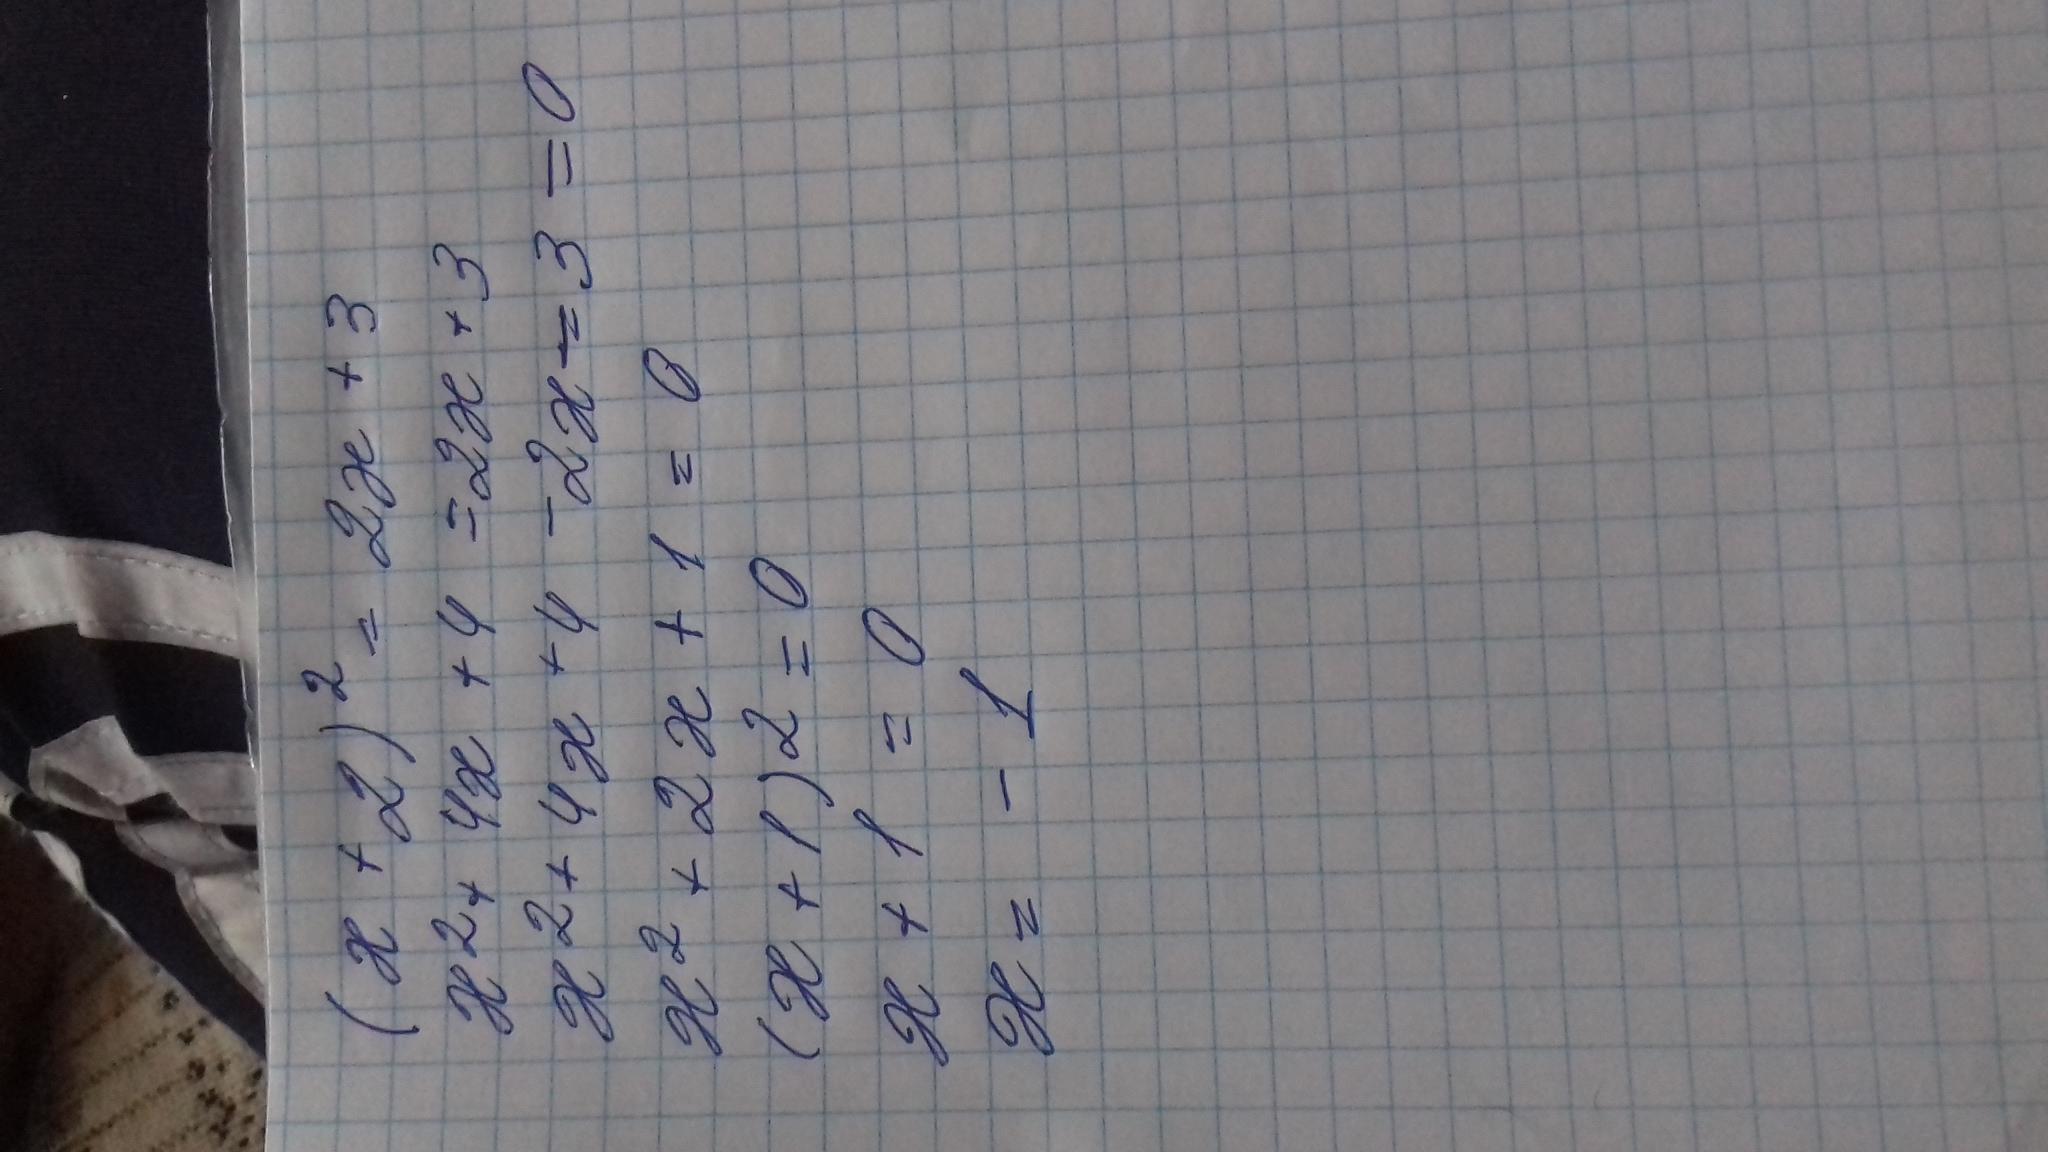 (x + 2)² = 2x + 3
x² + 4x + 4 = 2x + 3
x² + 4x + 4 - 2x - 3 = 0
x² + 2x + 1 = 0
(x + 1)2 = 0
x + 1 = 0
x = - 1